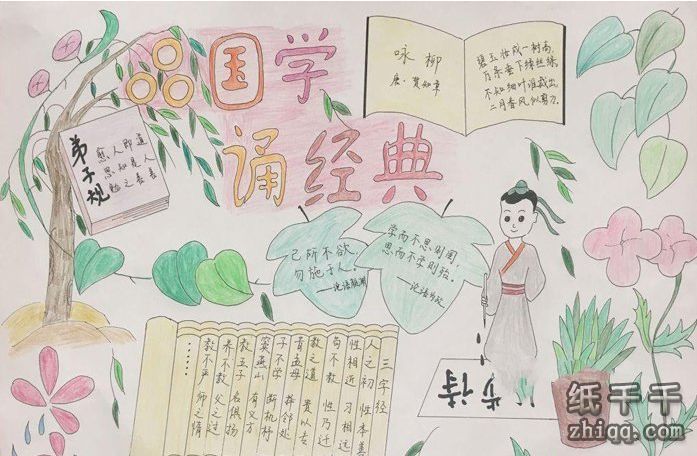 品国学
诵经典
咏柳
唐·贺知章
碧玉妆成一树高
万条垂下绿丝绦
不知细叶谁裁出
二月春风似剪刀
弟子规
道人善
即是善
人知之
愈思勉
己所不欲,
勿施于人。
——论语·颜渊
学而不思则罔
思而不学则殆。
——论语·为政
三字经
人之初 性本善
性相近 习相远
苟不教 性乃迁
教之道 贵以专
昔孟母 择邻处
子不学 断机杼
窦燕山 有义方
教五子 名俱扬
养不教 父之过
教不严 师之情
......
纸千千
zhiqq.com